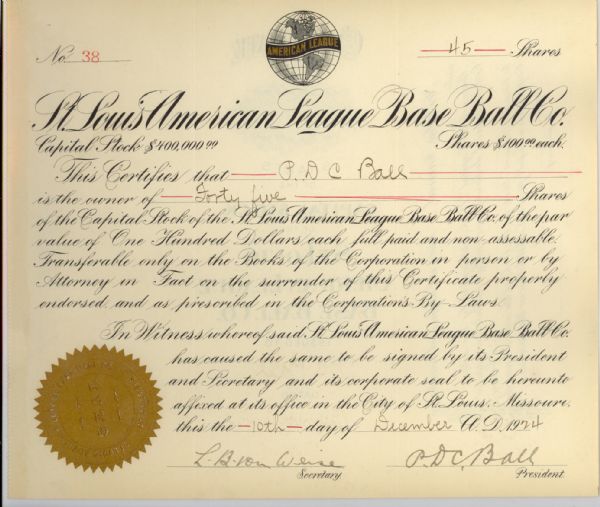 AMERICAN LEAGUE
No. 38
45 Shares
St. Louis American League Base Ball Co.
Capital Stock $400,000.00 Shares $100.00 each.
This Certifies that P. D C Ball
is the owner of Forty five Shares
of the Capital Stock of the St. Louis American League Base Ball Co. of the par
value of One Hundred Dollars each full paid and non-assessable.
Transferable only on the Books of the Corporation in person or by
Attorney in Fact on the surrender of this Certificate properly
endorsed and as prescribed in the Corporation's By-Laws.
In Witness whereof said St. Louis American League Base Ball Co.
has caused the same to be signed by its President
and Secretary and its corporate seal to be hereunto
affixed at its office in the City of St. Louis, Missouri,
this the 10th day of December A.D. 1924
L. B. von Weise P. D C. Ball
Secretary President